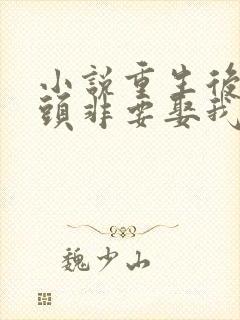 小說重生後
頭非要娶我
魏少山